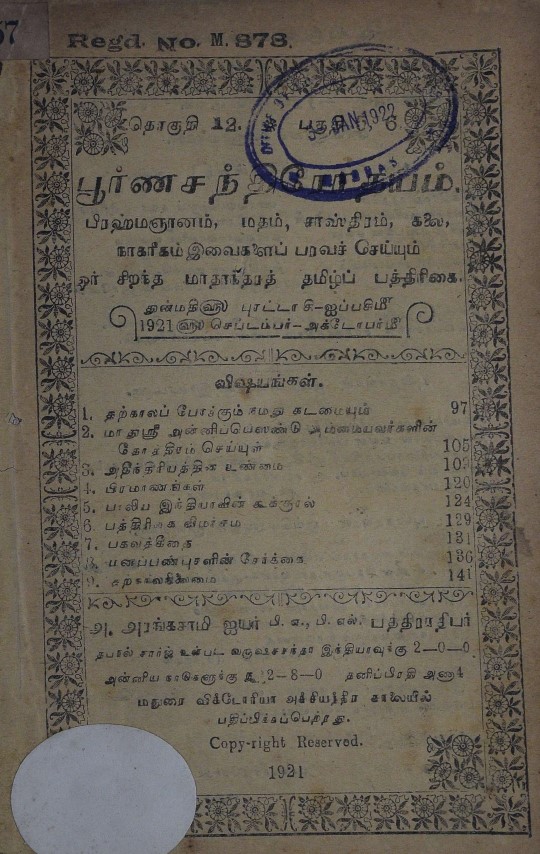 57
Regd. No. M. 878.
தொகுதி 12. பகுதி 5, 6
பூர்ணசந்திரோதயம்.
பிரஹ்மஞானம், மதம், சாஸ்திரம், கலை,
நாகரீகம் இவைகளைப் பரவச் செய்யும்
ஓர் சிறந்த மாதாந்தரத் தமிழ்ப் பத்திரிகை.
துன்மதி௵ புரட்டாசி-ஐப்பசி௴
1921௵ செப்டம்பர்-அக்டோபர்௴
விஷயங்கள்.
1. தற்காலப் போக்கும் நமது கடமையும் 97
2. மாதுஸ்ரீ அன்னிபெஸண்டு அம்மையவர்களின்
தோத்திரம் செய்யுள் 105
3. அதீந்திரியத்தின் உண்மை
4. பிரமாணங்கள் 120
5. பாலிய இந்தியாவின் கூக்குரல் 124
6. பத்திரிகை விமர்சம் 129
7. பகவத்கீதை 131
8. சேர்க்கை 136
9. தற்காலநிலைமை 141
அ. அரங்கசாமி ஐயர் பி. ஏ., பி. எல். பத்திராதிபர்
தபால் சார்ஜ் உள்பட வருஷசந்தா இந்தியாவுக்கு 2-0-0
அன்னிய நாடுகளுக்கு ரூ 2-8-0 தனிப்பிரதி அணா 4
மதுரை விக்டோரியா அச்சியந்திர சாலையில்
பதிப்பிக்கப்பெற்றது.
Copy-right Reserved.
1921
JAN 1922
MADRAS